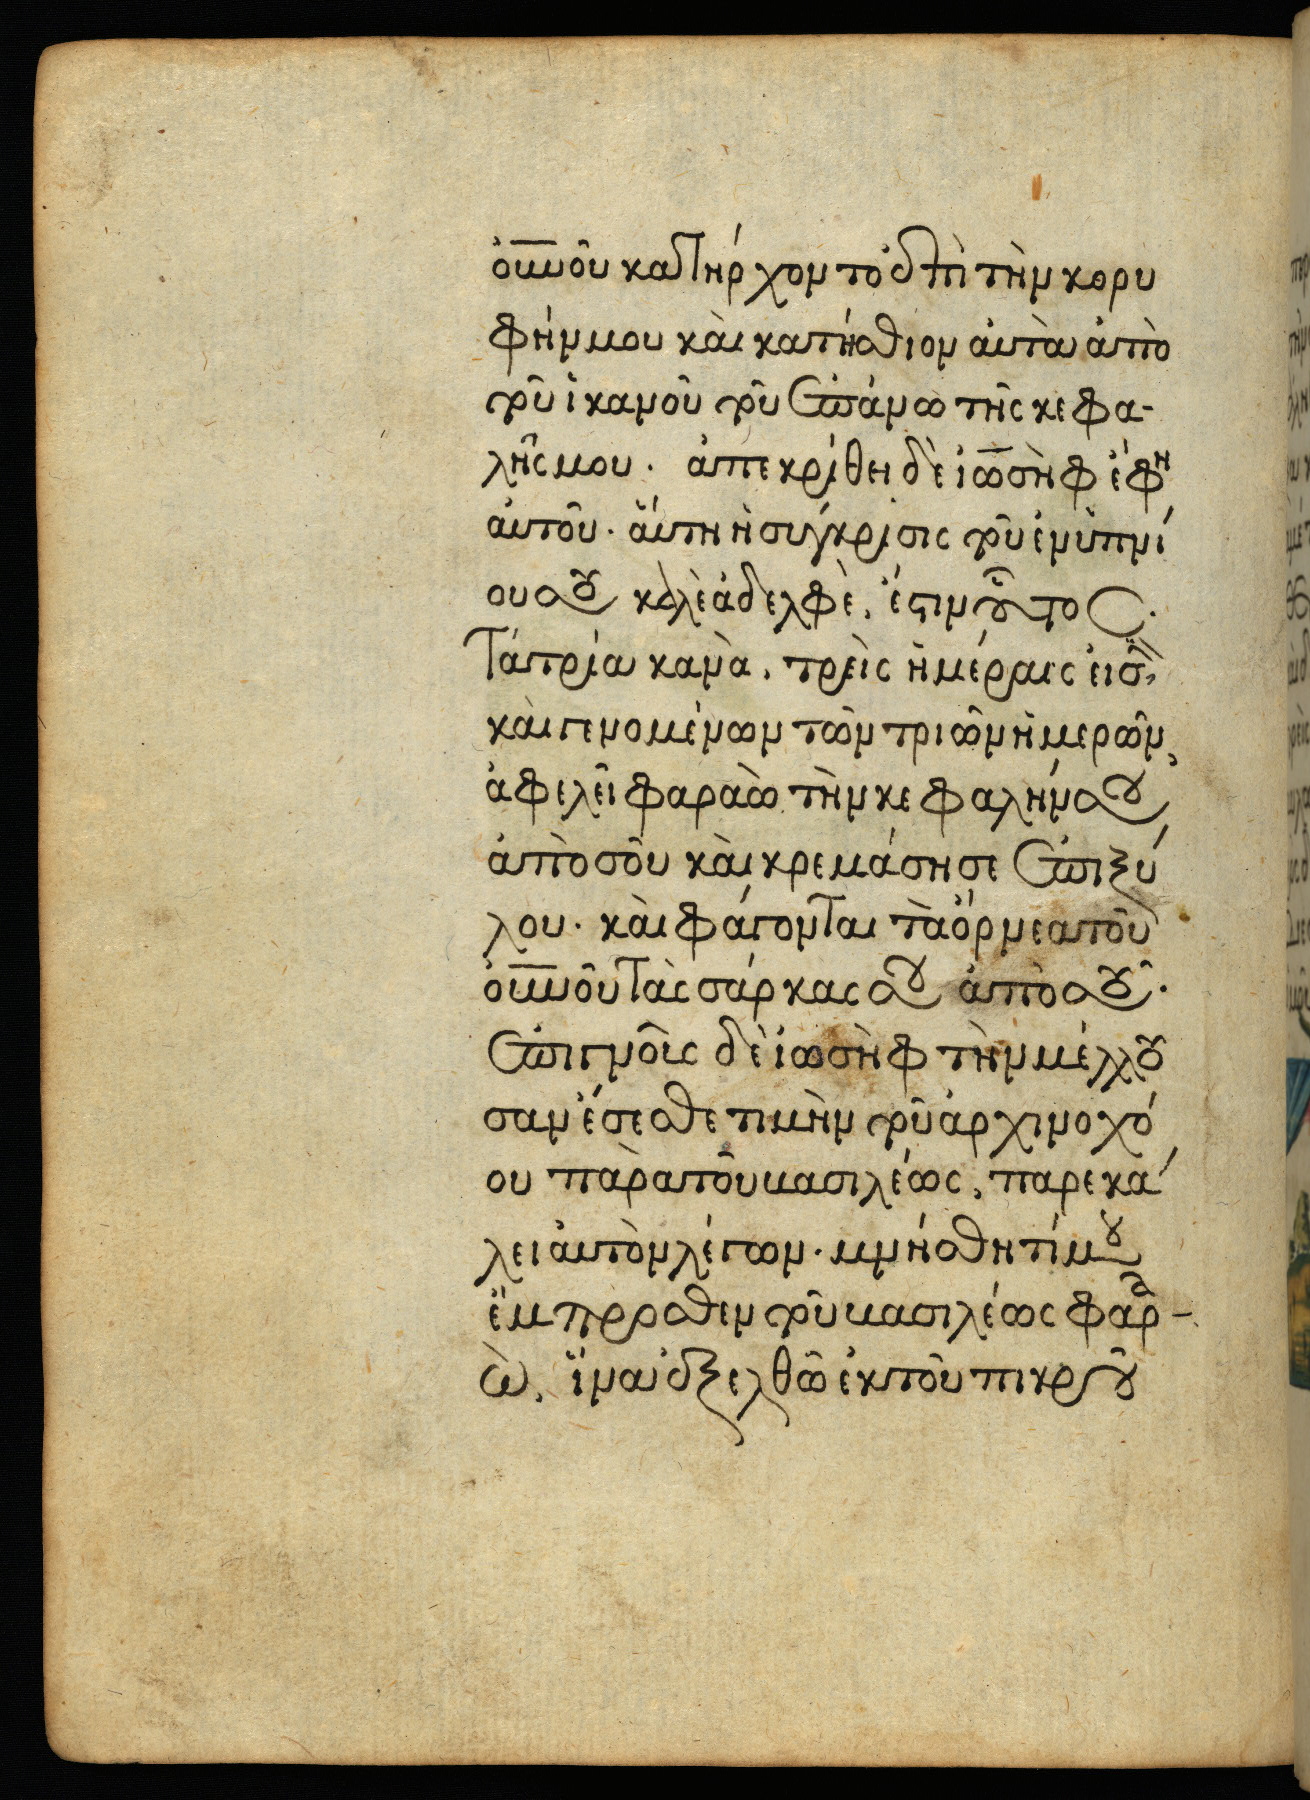 οὐνοῦ κατήρχοντο ἐπὶ τὴν κορυ
φήν μου καὶ κατήσθιον αὐτὰ ἀπὸ
τοῦ ἱκανοῦ τοῦ ἐπάνω τῆς κεφα-
λῆς μου. ἀπεκρίθη δὲ ἰωσὴφ ἔφη
αὐτοῦ. αὕτη ἡ σύγκρισις τοῦ ἐνυπνί
ου σου καλὲ ἀδελφὲ, ἔστιν οὗτος.
Τὰ τρία κανὰ, τρεῖς ἡμέραις εἰσ,
καὶ γενομένων τῶν τριῶν ἡμερῶν,
ἀφελεῖ φαραὼ τὴν κεφαλήν σου
ἀπὸ σοῦ καὶ κρεμάση σε ἐπι ξύ
λου. καὶ φάγονται τὰ ὄρνεα τοῦ
οὐνοῦ τὰς σάρκας σου ἀπὸ σοῦ.
ἐπιγνοῖς δὲ ἰωσὴφ τὴν μέλλου
σαν ἔσεσθε τιμὴν τοῦ ἀρχινοχό
ου παρὰ τοῦ βασιλέως, παρεκά
λει αὐτὸν λέγων. μνήσθητί μου
ἔμπροσθεν τοῦ βασιλέως φαρα-
ὼ, ἵνα ἐξελθῶ ἐκ τοῦ πικροῦ